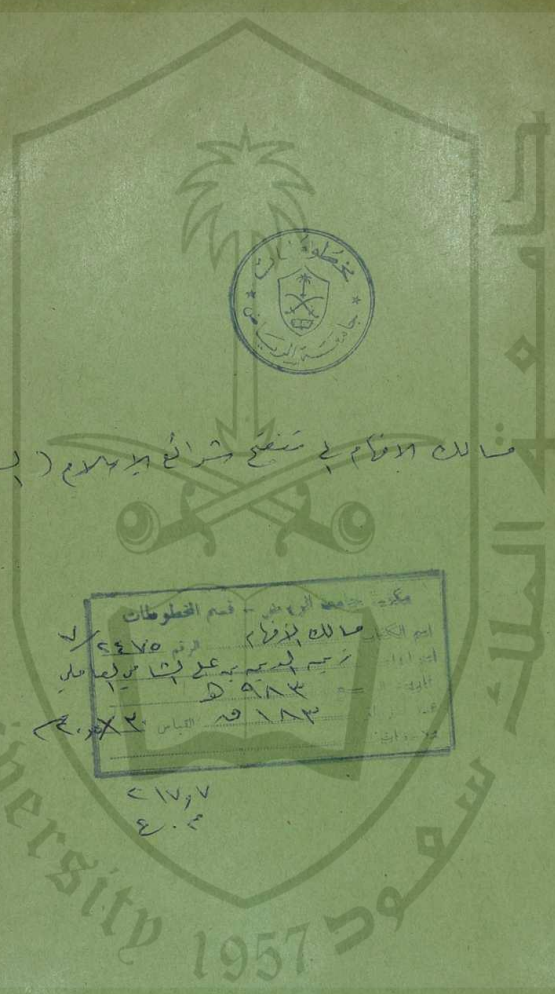 مخطوطات
جامعة الرياض
مسالك الافهام في تنقيح شرائع الاسلام (
مكتبة جامعة الرياض - قسم المخطوطات
اسم الكتاب مسالك الأفهام الرقم ٢٤٧٥/٧
زين الدين بن علي الشامي العاملي
٩٨٣ هـ
١٨٣ ق القياس
٢١٧,٧
م . ع
جامعة الملك سعود
University 1957